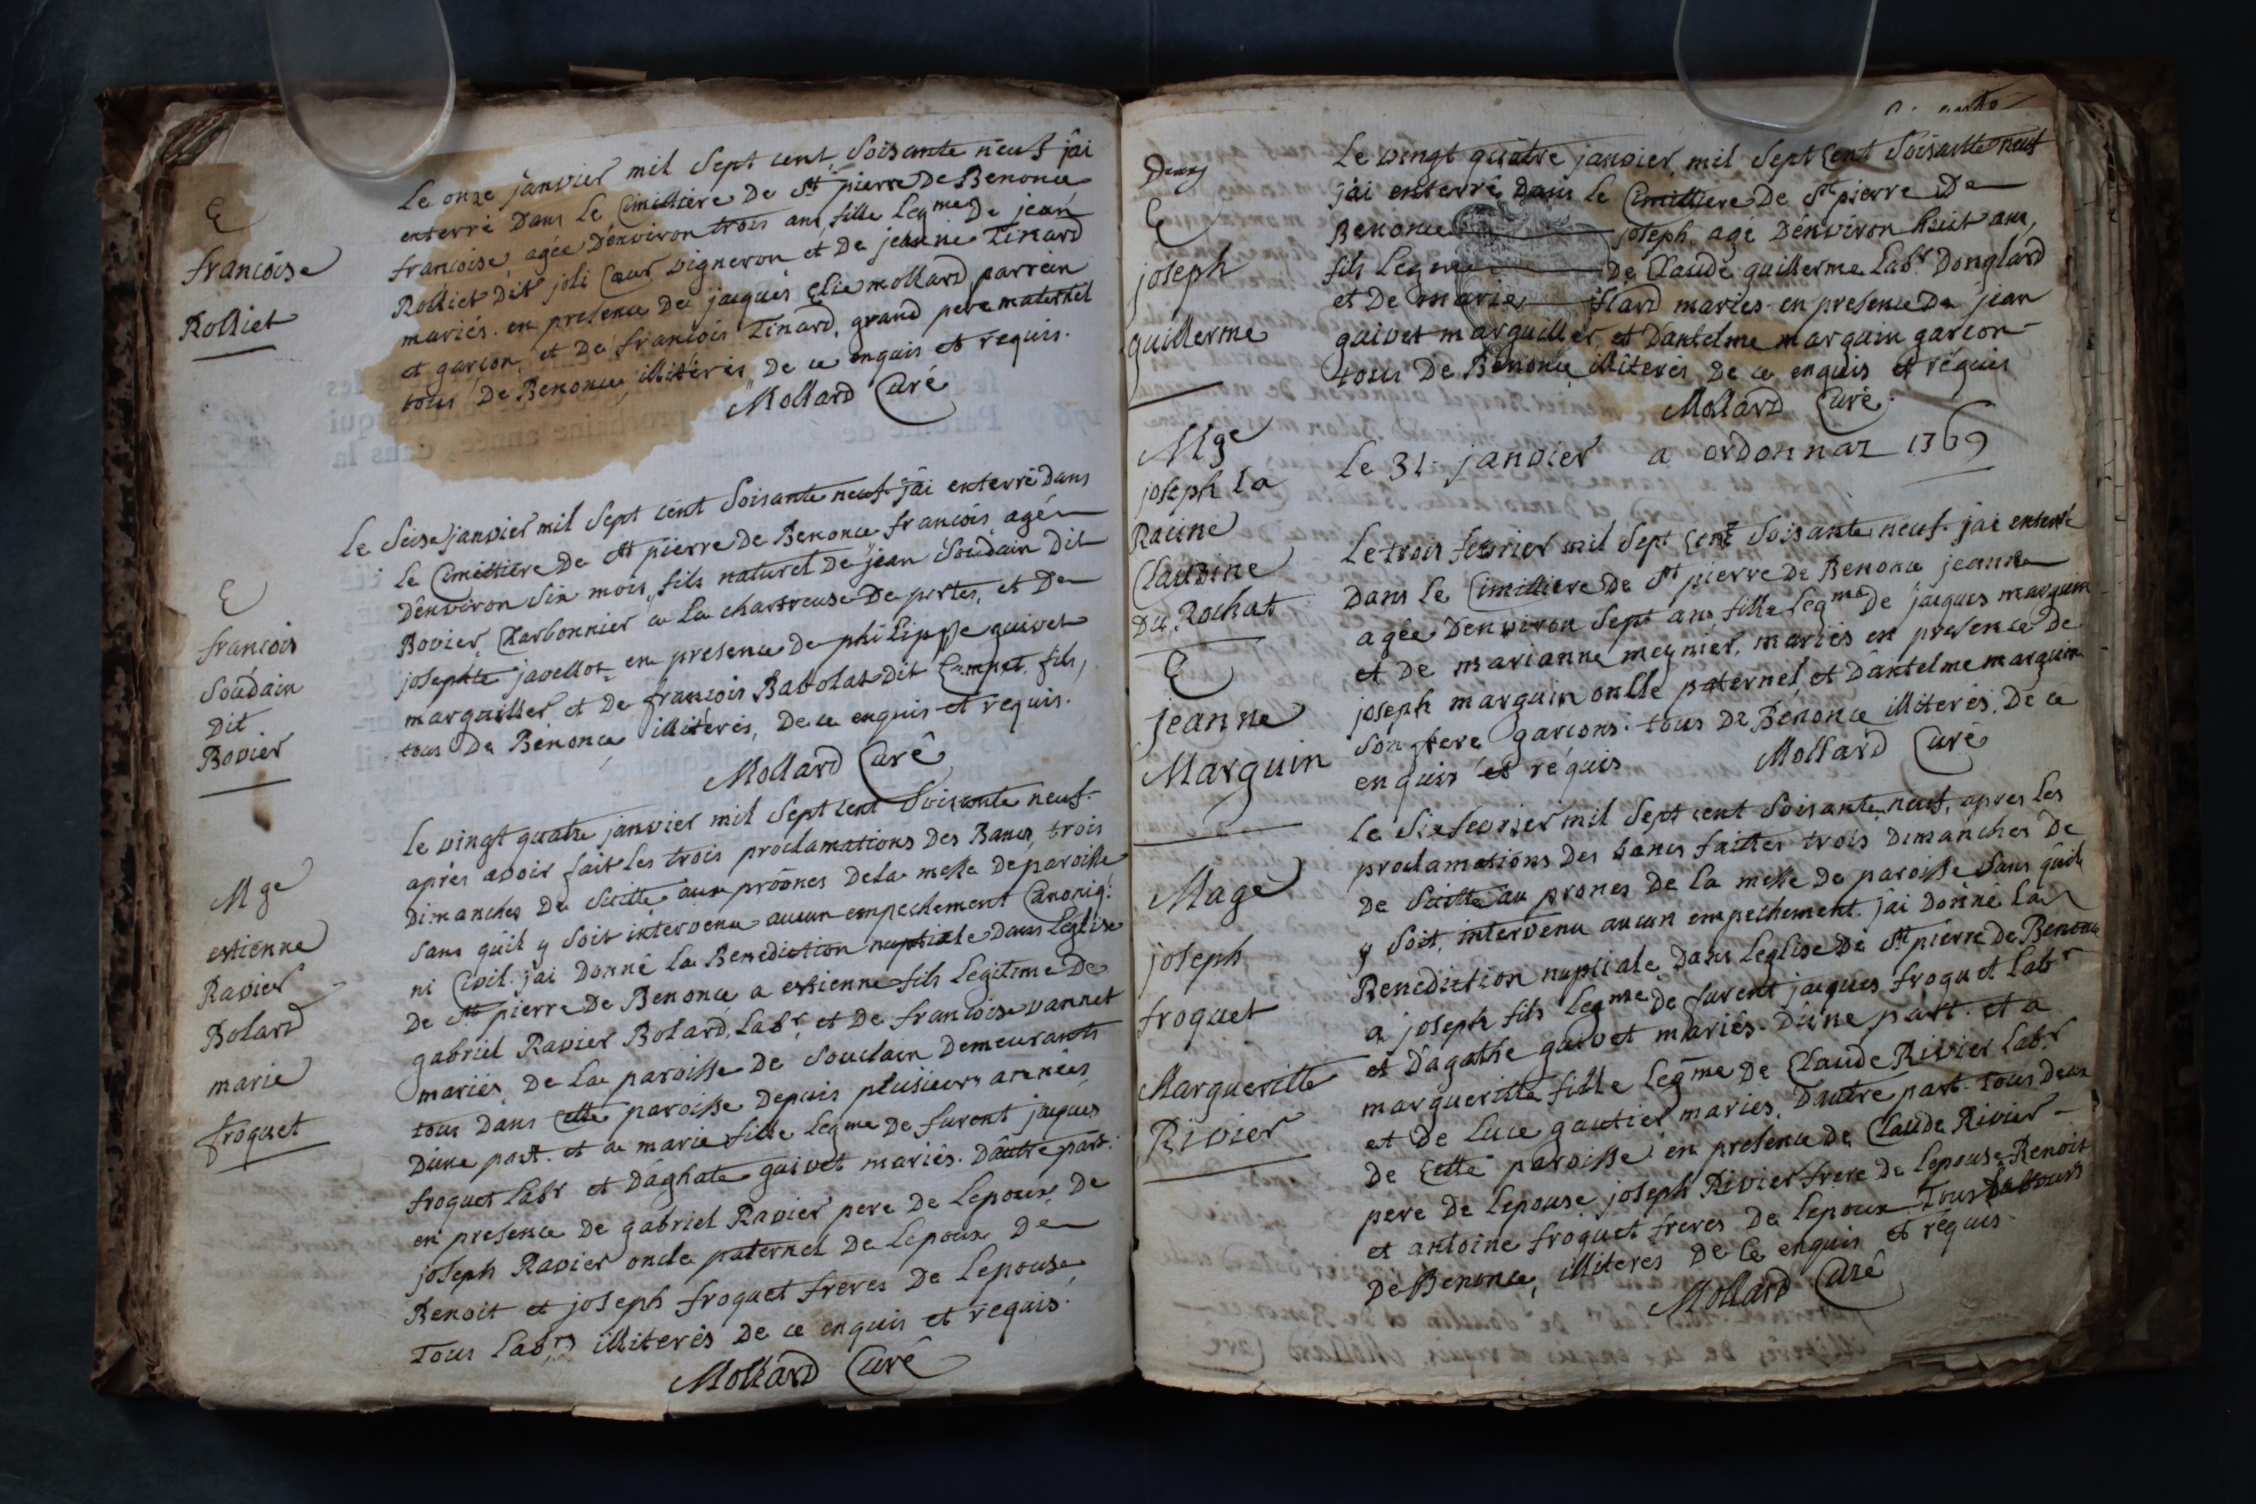 E
francoise
Rolliet
Le onze janvier mil sept cent soisante neuf jai
enterré dans le Cimittiere de St pierre de Benonce
francoise agée denviron trois ans, fille legme de jean
Rolliet dit joli Cœur vigneron et de jeanne Tinard
mariés. en presence de jacques elie mollard parrein
et garcon, et de francois Tinard, grand pere maternel
tous de Benonce, illiterés, de ce enquis et requis.
Mollard Curé
E
francois
Soudain
dit
Bovier
Le seise janvier mil sept cent soisante neuf jai enterré dans
le Cimittiere de St pierre de Benonce francois, agé
denviron six mois, fils naturel de jean Soudain dit
Bovier, Charbonnier a la chartreuse de portes, et de
josephte javellot en presence de philippe guivet
marguiller et de francois Bavolat dit fils,
tous de Benonce illiterés, de ce enquis et requis.
Mollard Curé
Mge
estienne
Ravier
Bolard
marie
froquet
Le vingt quatre janvier mil sept cent soisante neuf.
après avoir fait les trois proclamations des Bancs, trois
dimanches de suitte aux prônes de la messe de paroisse
sans quil y soit intervenu aucun empechement Canoniq:
ni Civil. jai donné la Benediction nuptiale dans Leglise
de St pierre de Benonce a estienne fils Legitime de
gabriel Ravier Bolard, Labr et de francoise vannet
mariés, de la paroisse de Souclain demeurants
tous dans cette paroisse depuis plusieurs années
dune part. et a marie fille Legme de furent jacques
froquet Labr et d'aghate guivet mariés. dautre part.
en presence de gabriel Ravier pere de Lepoux, de
joseph Ravier oncle paternel de Lepoux de
Benoit et joseph froquet freres de Lepouse
Tous Labrs illiterés de ce enquis et requis.
Mollard Curé
E
joseph
guillerme
Le vingt quatre janvier, mil sept Cent soisante neuf
jai enterré dans le Cimittiere de St pierre de
Benonce joseph agé denviron huit ans,
fils Legme de Claude guillerme Labr Donglard
et de marie mariés en presence de jean
guivet marguiller, et dantelme marguin garcon
tous de Benonce illiterés de ce enquis et requis
Mollard Curé
Mge
joseph La
Racine
Claudine
du Rochat
Le 31. janvier a ordonnaz 1769
E
jeanne
Marguin
Le trois fevrier mil sept cent soisante neuf jai enterré
dans le Cimittiere de St pierre de Benonce jeanne
agée denviron sept ans, fille Legme de jacques marguin
et de marianne meynier. mariés en presence de
joseph marguin onlle paternel et dantelme marguin
son frere garcons. tous de Benonce illiterés. de ce
enquis et requis Mollard Curé
Mage
joseph
froquet
Margueritte
Rivier
Le six fevrier mil sept cent soisante neuf, apres les
proclamations des bancs faittes trois dimanches de
de suitte au prones de la messe de paroisse sans quil
y soit intervenu aucun empechement. jai donné la
Benediction nuptiale dans Leglise de St pierre de Benonce
a joseph fils Legme de furent jacques froquet Labr
et dagathe guivet mariés dune part. et a
margueritte fille Legme de Claude Rivier Labr
et de Luce gautier mariés. dautre part. tous deux
de cette paroisse en presence de Claude Rivier
pere de Lepouse joseph Rivier frere de Lepouse Benoit
et antoine froquet freres de Lepoux Tous
de Benonce, illiteres de ce enquis et requis
Mollard Curé